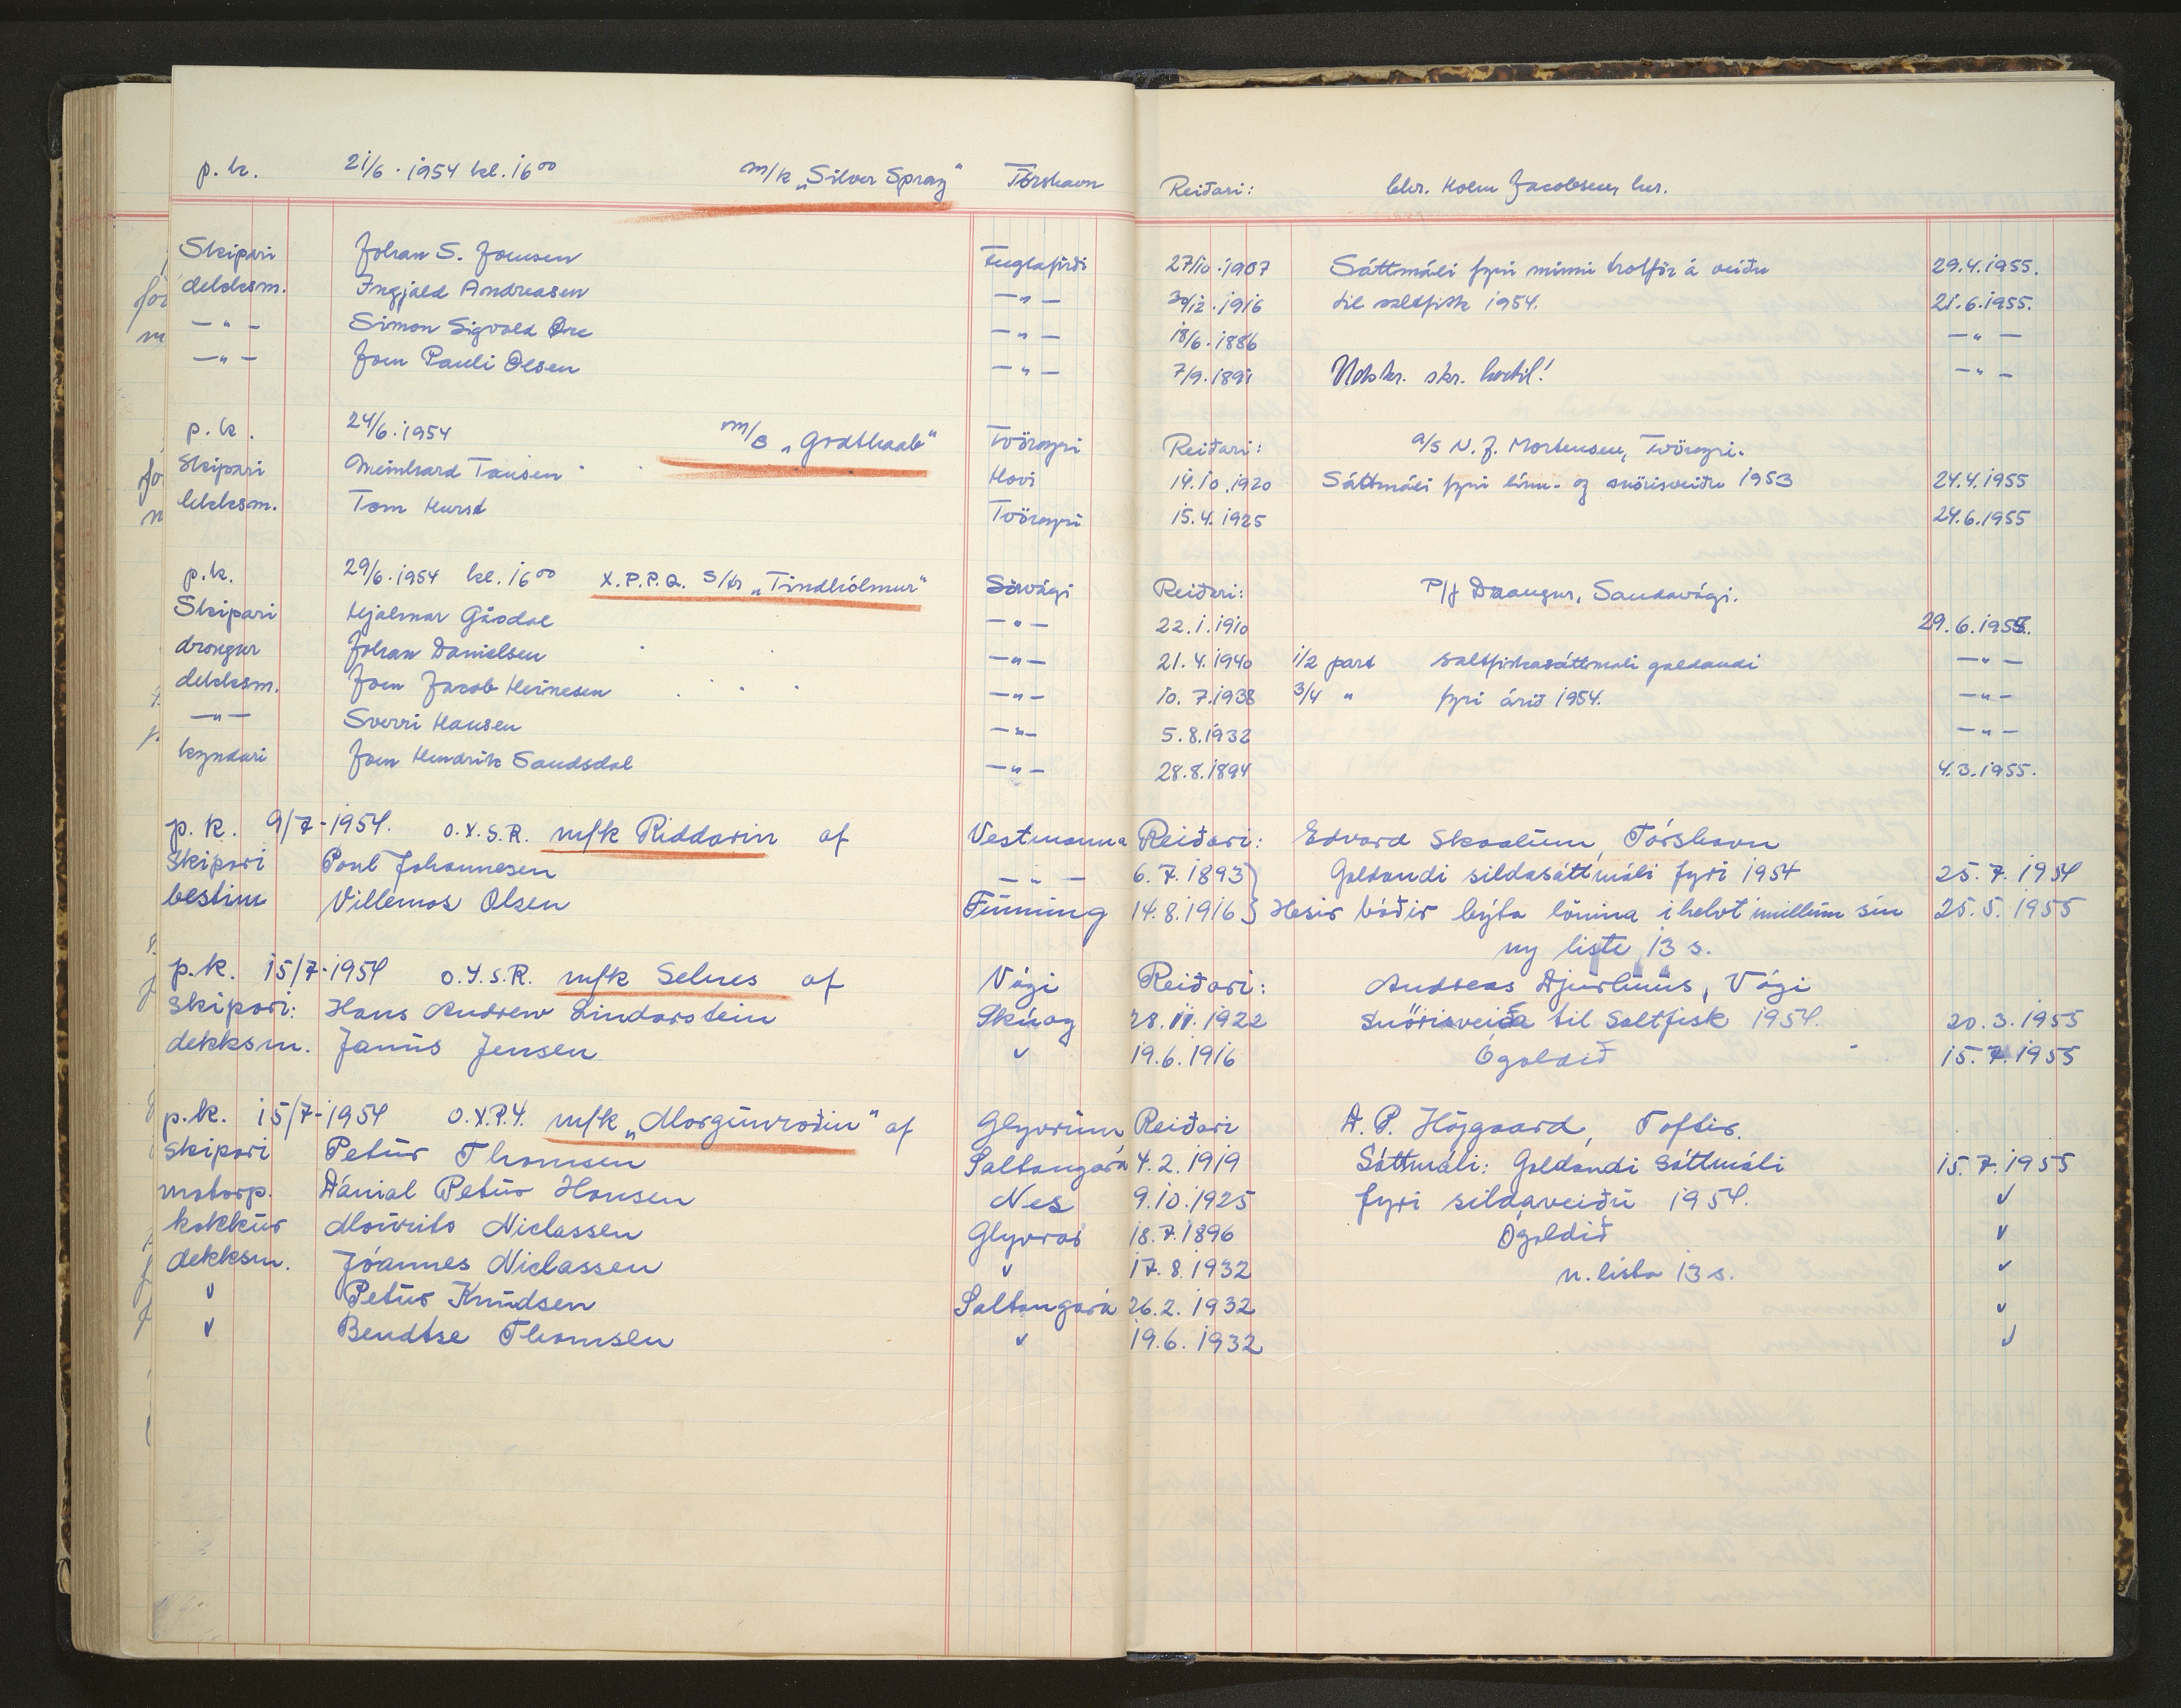 p.k. 21/6.1954 kl. 16⁰⁰ m/k „Silver Spray“ Tórshavn Reiðari: Chr. Holm Jacobsen, hér.
Skipari Johan S. Joensen Fuglafirði 27/10.1907 Sáttmáli fyri minni trolför á veiðu 29.4.1955.
dekksm. Ingjald Andreasen —„— 30/12.1916 til saltfisk 1954. 21.6.1955.
—„— Simon Sigvald Øre —„— 18/6.1886 —„—
—„— Joen Pauli Olsen —„— 7/9.1891 skr. —„—
p.k. 24/6.1954 m/s „Godthaab“ Tvöroyri Reiðari: a/s N. J. Mortensen, Tvöroyri.
Skipari Meinhard Tausen Hovi 14.10.1920 Sáttmáli fyri línu- og snörisveiðu 1953 24.4.1955
dekksm. Tom Hurst Tvöroyri 15.4.1925 24.6.1955
p.k. 29/6.1954 kl. 16⁰⁰ X.P.P.Q. s/tr „Tindhólmur“ Sörvági Reiðari: P/f Draangur, Sandavági.
Skipari Hjalmar Gásdal —„— 22.1.1910 29.6.1955.
drongur Johan Danielsen —„— 21.4.1940 1/2 part saltfiskasáttmáli galdandi —„—
dekksm. Joen Jacob Heinesen —„— 10.7.1938 3/4 „ fyri árið 1954. —„—
—„— Sverri Hansen —„— 5.8.1932 —„—
kyndari Joen Hendrik Sandsdal —„— 28.8.1894 4.3.1955.
p.k. 9/7-1954. O.Y.S.R. m/k Riddarin af Vestmanna Reiðari: Edvard Skaalum, Tórshavn
Skipari Poul Johannesen —„— 6.7.1893 Galdandi sildasáttmáli fyri 1954 25.7.1954
bestim Villemos Olsen Funning 14.8.1916 Hesir báðir býta lönina i helvt millum sín 25.5.1955
ny liste 13 s.
p.k. 15/7-1954 O.Y.S.R. m/k Selnes af Vági Reiðari: Andreas Djurhuus, Vági
Skipari: Hans Andrew Lindarstein Skúoy 28.11.1922 Snörisveiða til Saltfisk 1954. 20.3.1955
dekksm. Janus Jensen " 19.6.1916 Ógoldið 15.7.1955
p.k. 15/7-1954 O.X.P.Y. m/k „Morgunroðin“ af Glyvrum Reiðari D. P. Höjgaard, Toftir.
Skipari Petur Thomsen Saltangará 4.2.1919 Sáttmáli: Galdandi Sáttmáli 15.7.1955
motorp. Dánial Petur Hansen Nes 9.10.1925 fyri sildaveiðu 1954. "
kokkur Mourits Niclassen Glyvrar 18.7.1896 Ógoldið "
dekksm. Jóannes Niclassen " 17.8.1932 n. lista 13 s. "
" Petur Knudsen Saltangará 26.2.1932 "
" Bendtse Thomsen " 19.6.1932 "